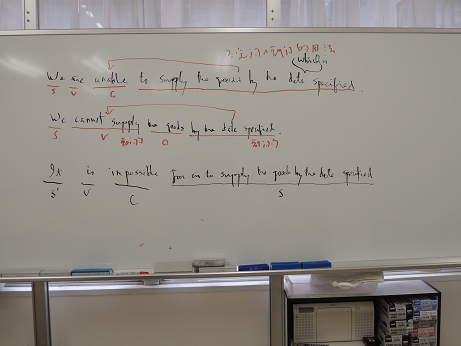 の用法
which is
We are unable to supply the goods by the date specified.
S V C
We cannot suppply the goods by the date specified.
S V O
It is impossible for us to supply the goods by the date specified
S' V C S